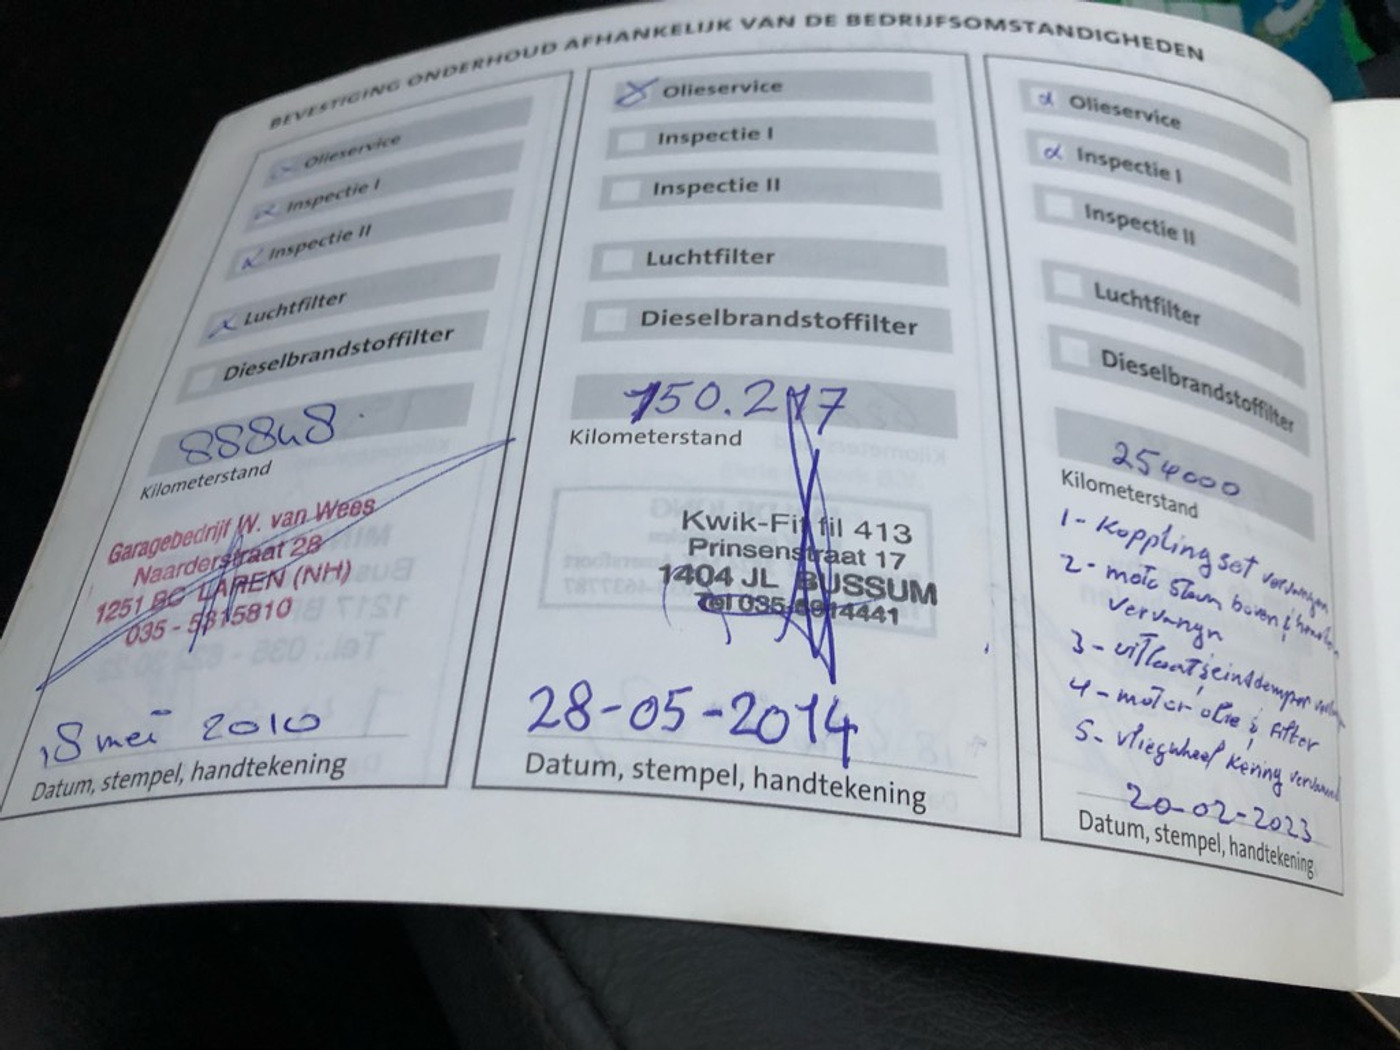 BEVESTIGING ONDERHOUD AFHANKELIJK VAN DE BEDRIJFSOMSTANDIGHEDEN
Olieservice
Inspectie I
Inspectie II
Luchtfilter
Dieselbrandstoffilter
88848
Kilometerstand
Garagebedrijf W. van Wees
Naarderstraat 28
1251 BC LAREN (NH)
035 - 5315810
18 mei 2010
Datum, stempel, handtekening
Olieservice
Inspectie I
Inspectie II
Luchtfilter
Dieselbrandstoffilter
150.217
Kilometerstand
Kwik-Fit fil 413
Prinsenstraat 17
1404 JL BUSSUM
Tel 035-6914441
28-05-2014
Datum, stempel, handtekening
Olieservice
Inspectie I
Inspectie II
Luchtfilter
Dieselbrandstoffilter
254000
Kilometerstand
1- Koppling set vervangen
2- motc steun boven &
vervangn
3- uitlaat einddemper
4- motor olie & filter
5- vliegwheel kering
20-02-2023
Datum, stempel, handtekening